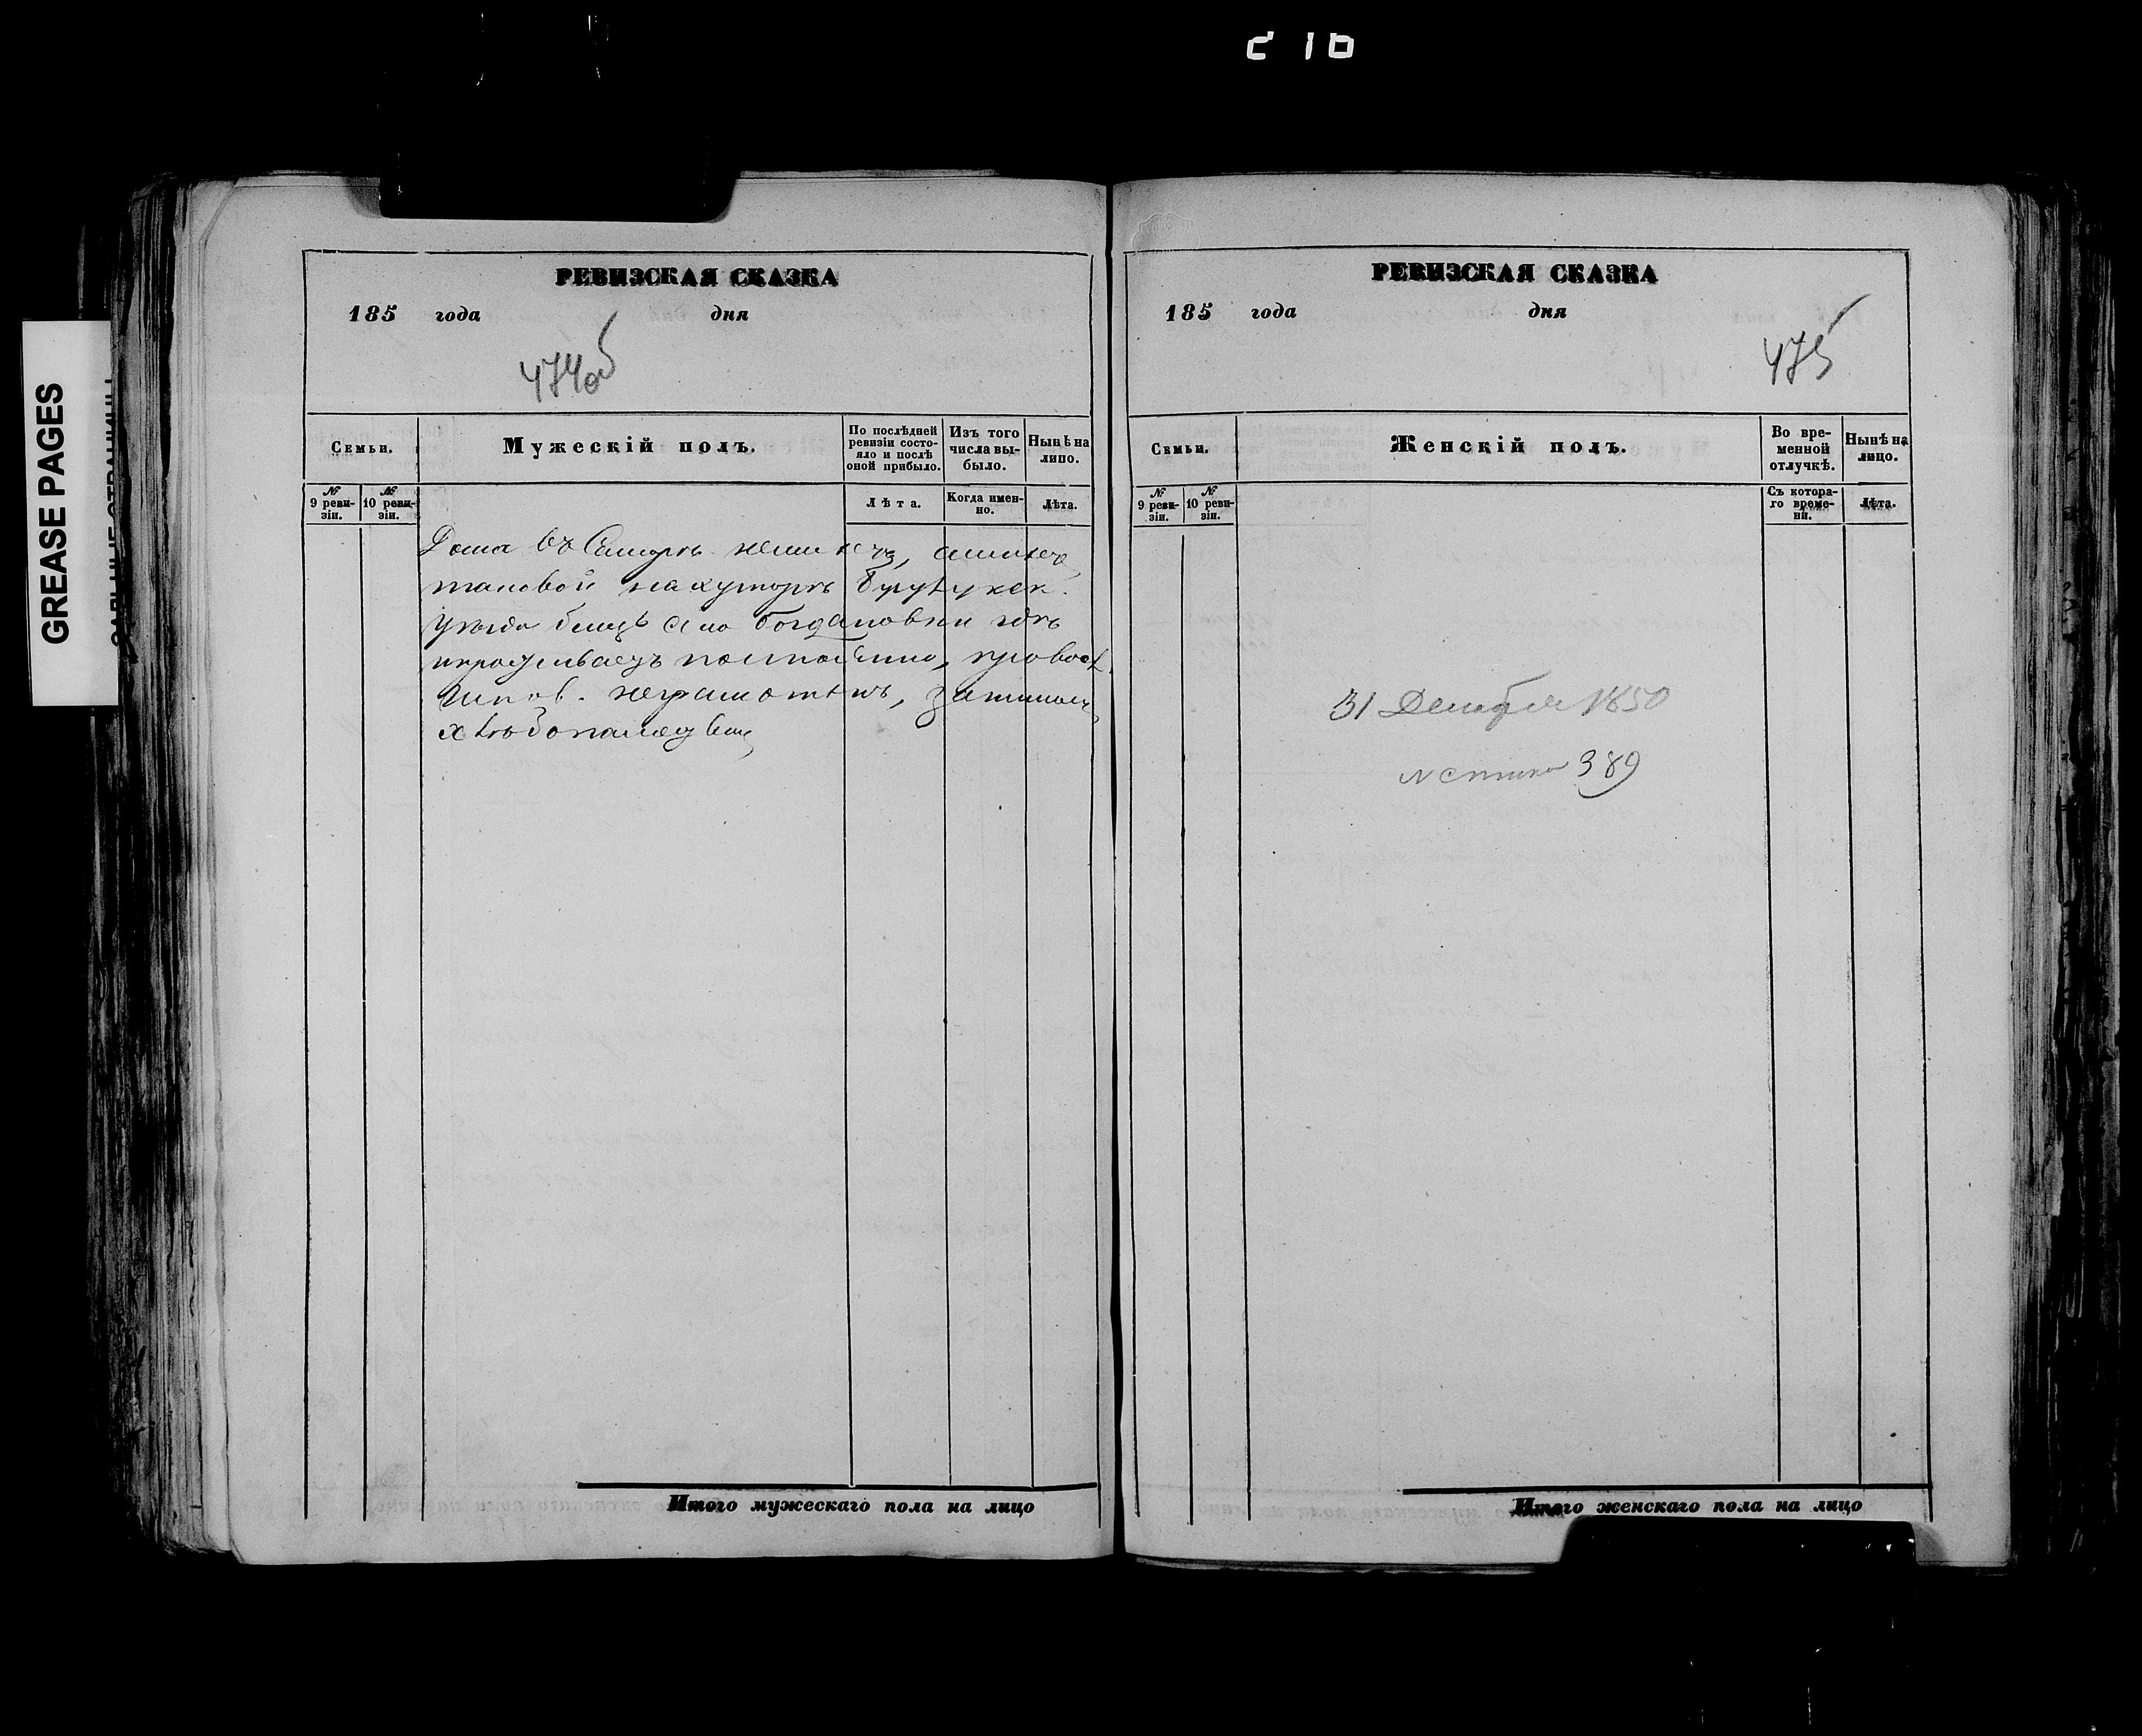 210
GREASE PAGES
РЕВИЗСКАЯ СКАЗКА
185 года дня
474об
Семьи.
Мужескій полъ.
По послѣдней ревизіи состо-
яло и послѣ оной прибыло.
Изъ того числа вы-
было.
Нынѣ на лицо.
№ 9 реви-
зіи.
№ 10 реви-
зіи.
Лѣта.
Когда имен-
но.
Лѣта.
Дома въ Самарѣ неимѣетъ, аимѣетъ
таковой нахуторѣ Бузулукск.
Уѣзда близь села Богдановки гдѣ
и проживаетъ постоянно,
неграмотенъ,
хлѣбопашеством
Итого мужескаго пола на лицо
РЕВИЗСКАЯ СКАЗКА
185 года дня
475
Семьи.
Женскій полъ.
Во вре-
менной
отлучкѣ.
Нынѣ на
лицо.
№ 9 реви-
зіи.
№ 10 реви-
зіи.
Съ котора-
го време-
ни.
Лѣта.
31 Декабря 1850
389
Итого женскаго пола на лицо